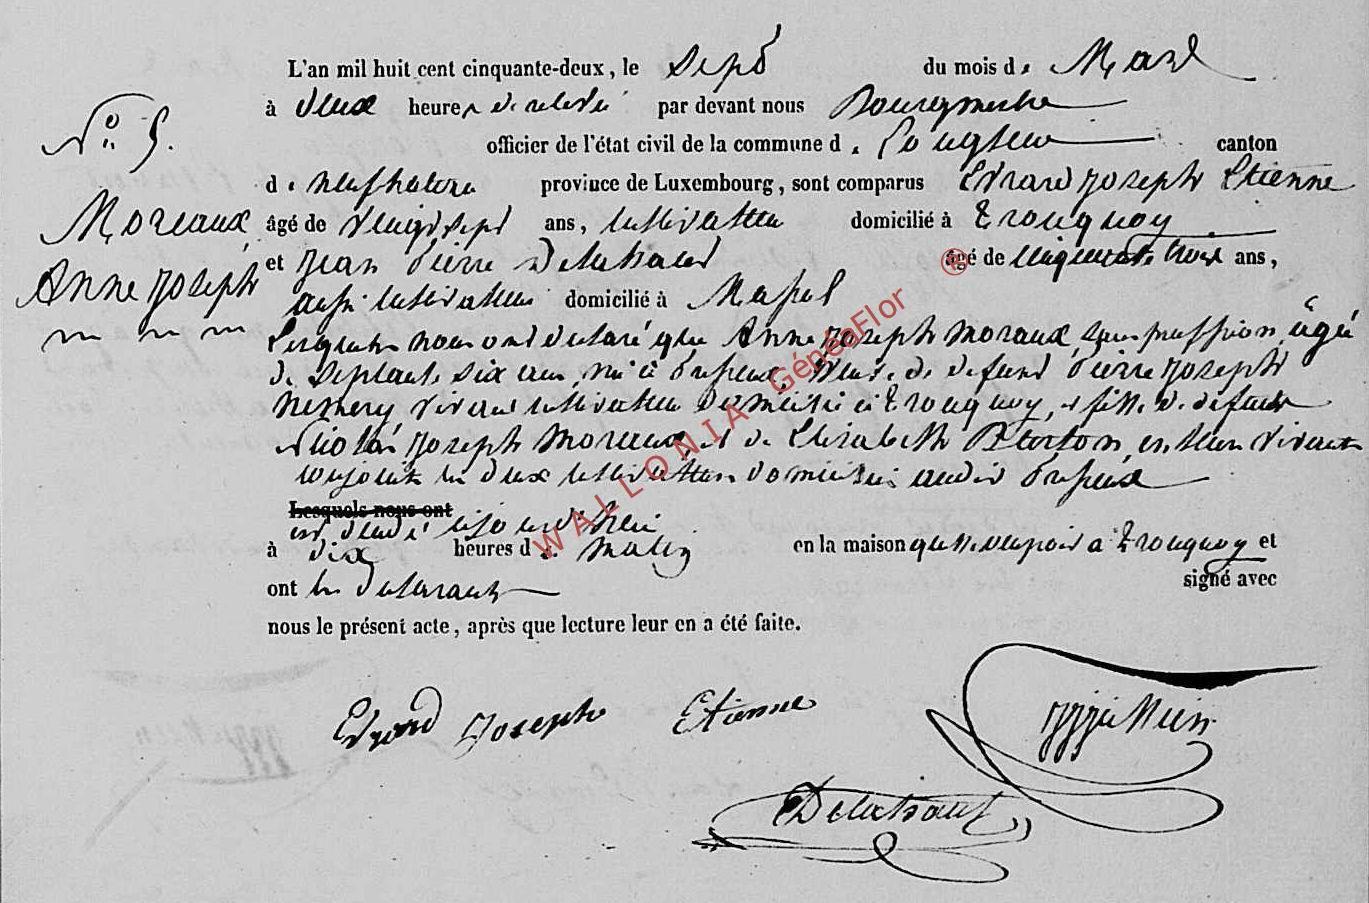 L'an mil huit cent cinquante-deux, le Sept du mois de Mars
à deux heures de relevée par devant nous Bourgmestre
N° 5. officier de l'état civil de la commune de Longlier canton
de neufchateau province de Luxembourg, sont comparus Evrard Joseph Etienne
Moreaux âgé de vingt sept ans, cultivateur domicilié à Tronquoy
et Jean Pierre âgé de cinquante trois ans,
Anne Joseph aussi cultivateur domicilié à Massul
Lesquels nous ont déclaré que Anne Joseph Moraux, sans profession, âgée
de Septante six ans, née à Offaing, veuve de defunt Pierre Joseph
vivant cultivateur domicilié à Tronquoy, et fille de defunt
Nicolas Joseph Moreaux, et de Elisabeth en leur vivant
conjoints les deux cultivateurs domiciliés audit
Lesquels nous ont
est décédé cejourd'hui
à dix heures du matin en la maison à Tronquoy et
ont les déclarants signé avec
nous le présent acte, après que lecture leur en a été faite.
Evrard Joseph Etienne
WALLONIA GénéaFlor ®